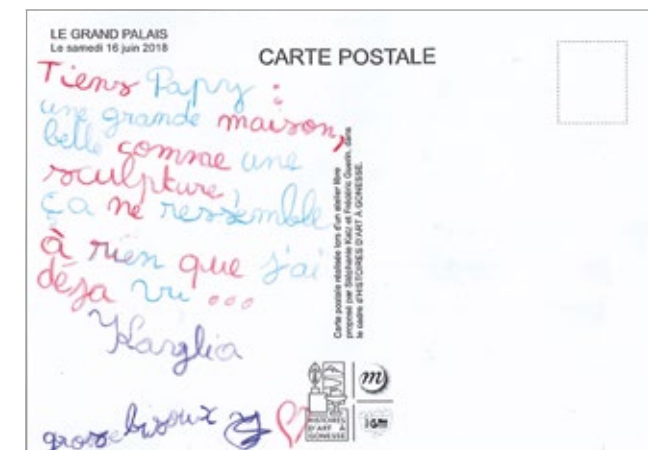 LE GRAND PALAIS
Le samedi 16 juin 2018
CARTE POSTALE
Tiens Papry :
une grande maison,
belle comme une
sculpture,
ça ne ressemble
à rien que j'ai
déja vu ...
Kanglia
grosse bisoux
Carte postale réalisée lors d'un atelier libre
proposé par Stéphanie Katz et Frédéric Guerin, dans
le cadre d'HISTOIRES D'ART À GONESSE.
m
HISTOIRES
D'ART À
GONESSE